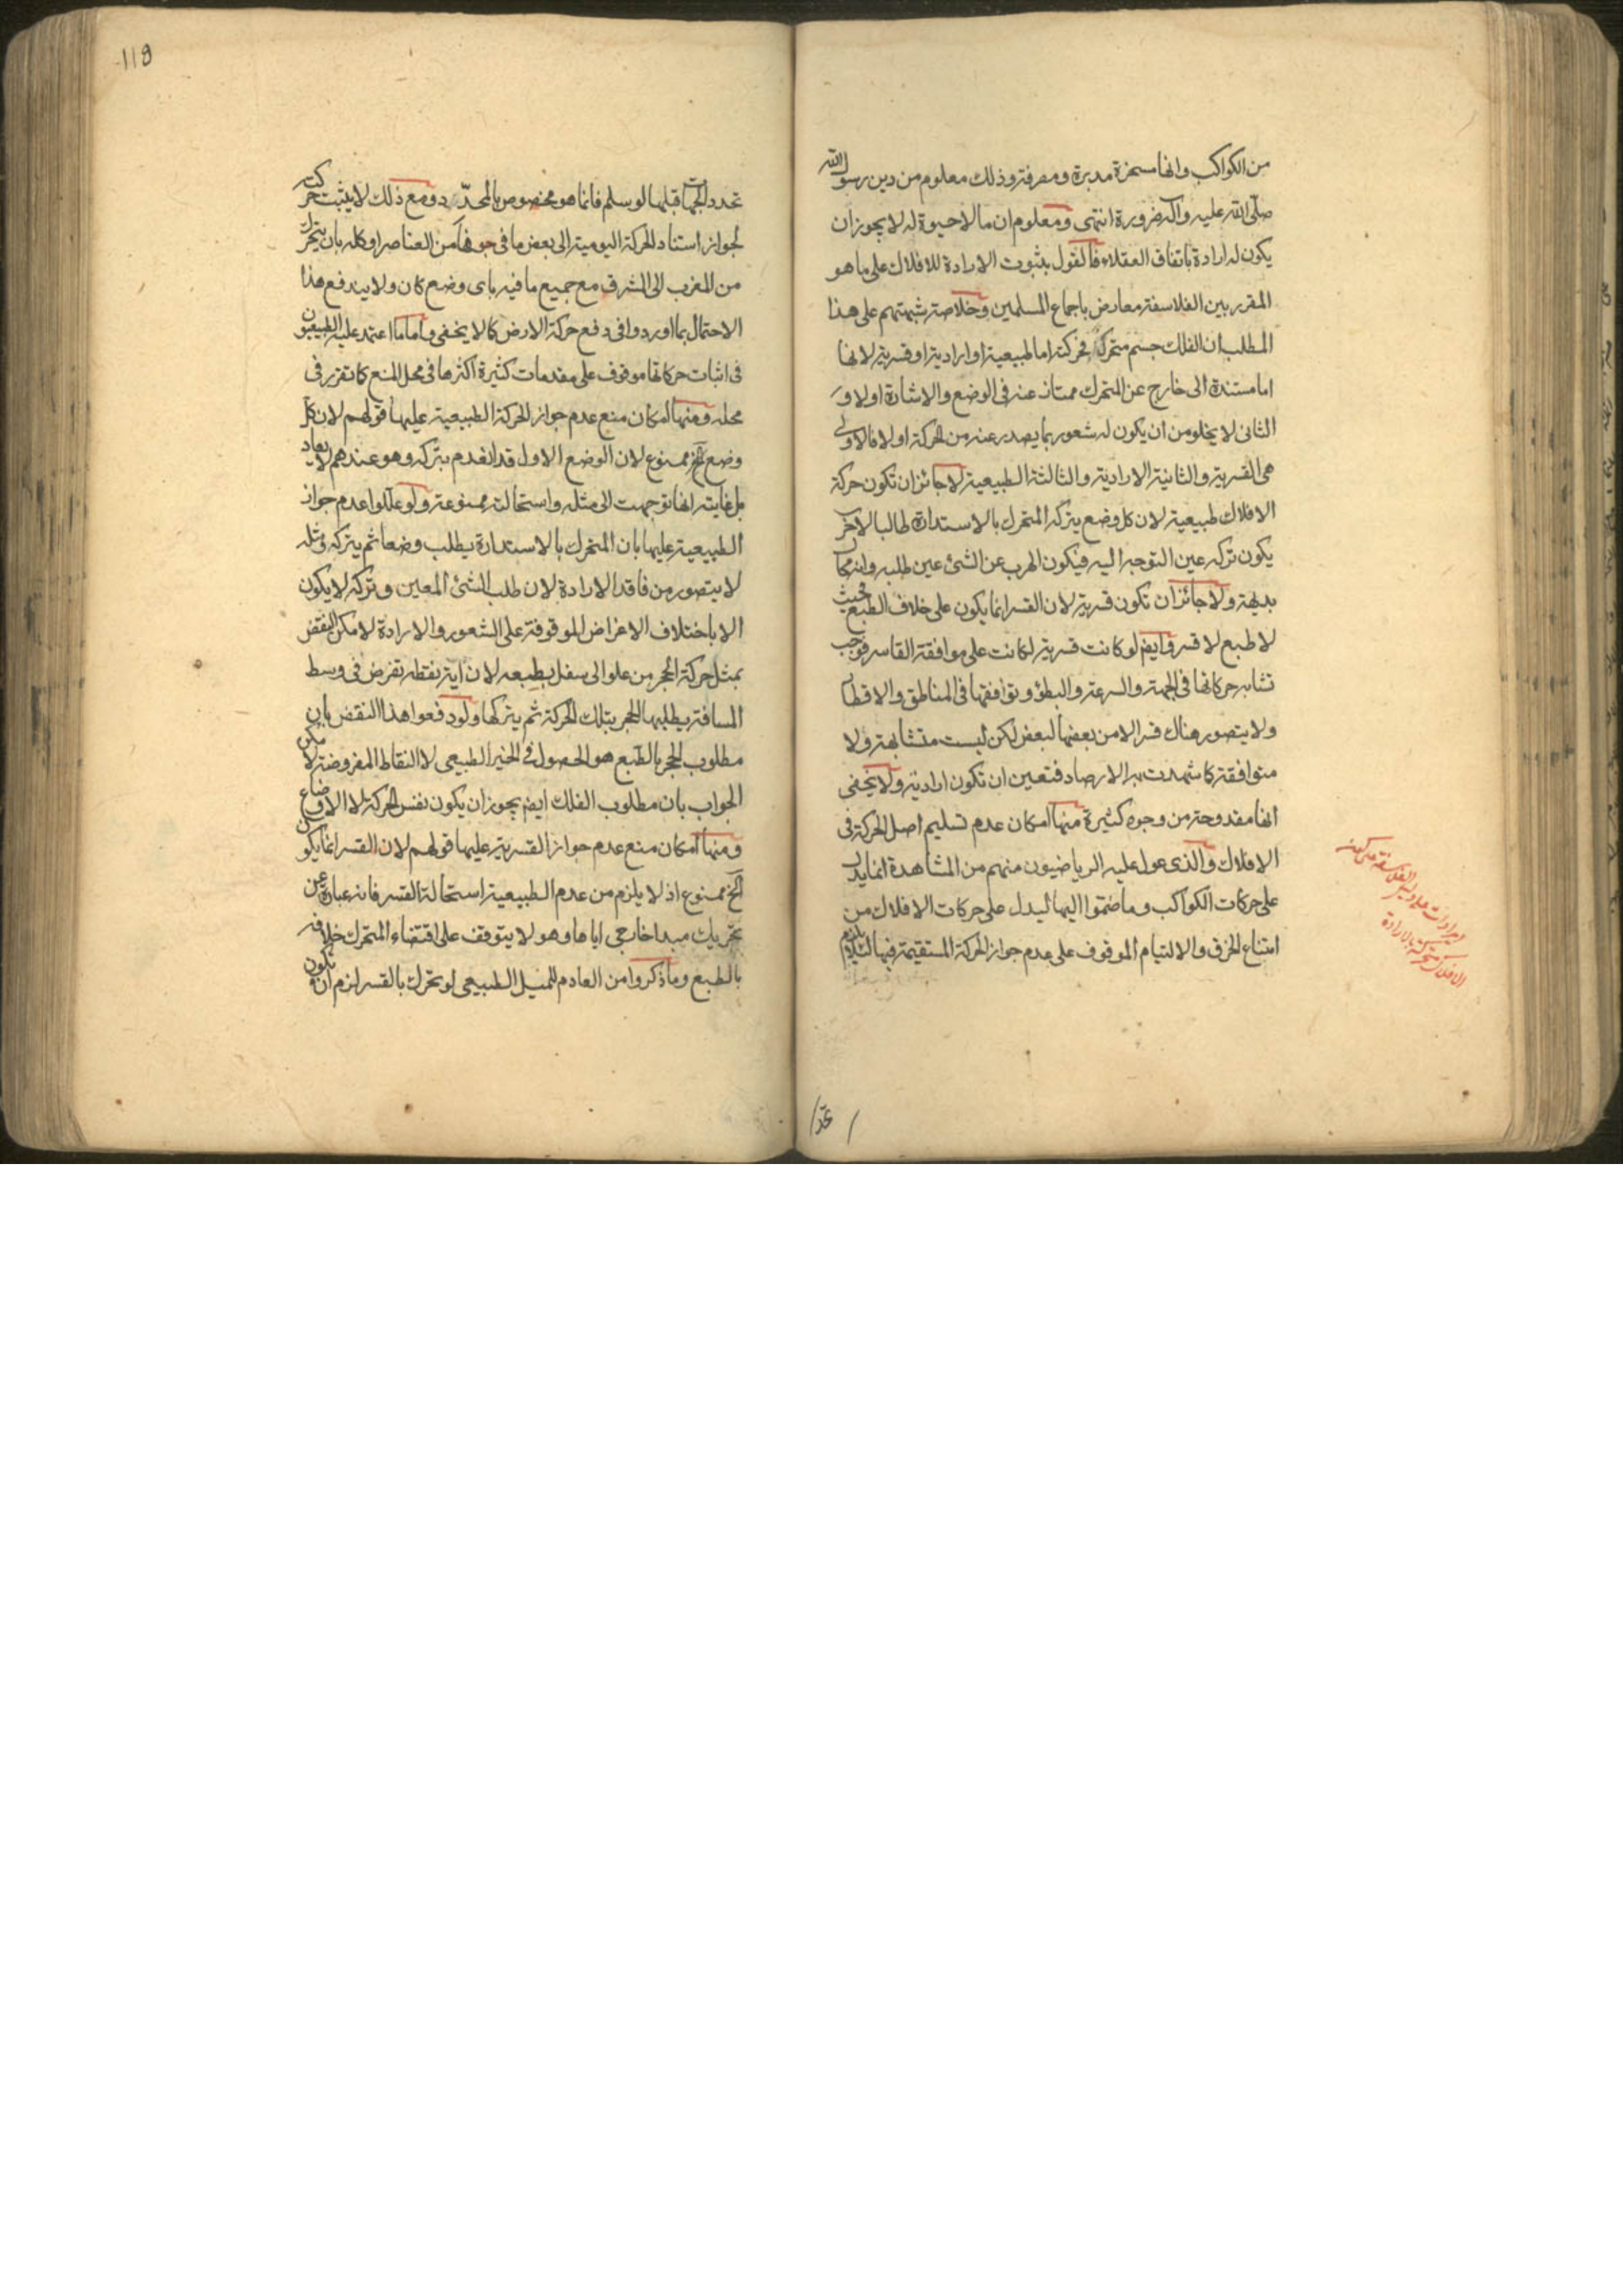 من الكواكب وانها مسخرة مدبرة ومصرفة وذلك معلوم من دين رسول الله
صلّى الله عليه وآله ضرورة انتهى ومعلوم ان ما لا حيوة له لا يجوز ان
يكون له ارادة باتفاق العقلاء فالقول بثبوت الارادة للافلاك على ما هو
المقرر بين الفلاسفة معارض باجماع المسلمين وخلاصة شبهتهم على هذا
المطلب ان الفلك جسم متحرك فحركته اما طبيعية او ارادية او قسرية لانها
اما مستندة الى خارج عن المتحرك ممتاز عنه في الوضع والاشارة او لا و
الثاني لا يخلو من ان يكون له شعور بما يصدر عنه من الحركة او لا فالاولى
هي القسرية والثانية الارادية والثالثة الطبيعية لا جائز ان تكون حركة
الافلاك طبيعية لان كل وضع يتركه المتحرك بالاستدارة طالبا لاخر
يكون تركه عين التوجه اليه فيكون الهرب عن الشئ عين طلبه وانه محال
بديهة ولا جائز ان تكون قسرية لان القسر انما يكون على خلاف الطبع فحيث
لا طبع لا قسر وايضا لو كانت قسرية لكانت على موافقة القاسر فوجب
تشابه حركاتها في الجهة والسرعة والبطؤ وتوافقها في المناطق والاقطاب
ولا يتصور هناك قسر الا من بعضها لبعض لكن ليست متشابهة ولا
متوافقة كما شهدت به الارصاد فتعين ان تكون ارادية ولا يخفى
انها مقدوحة من وجوه كثيرة منها امكان عدم تسليم اصل الحركة في
الافلاك والذي عول عليه الرياضيون منهم من المشاهدة انما يدل
على حركات الكواكب وما ضموا اليها ليدل على حركات الافلاك من
امتناع الخرق والالتيام الموقوف على عدم جواز الحركة المستقيمة فيها لئلا يلزم
ايرادات على دليل الفلاسفة على كون
الافلاك متحركة بالارادة
تحدد
118
تحدد الجهات قبلها لو سلم فانما هو مخصوص بالمحدّد ومع ذلك لا يثبت حركته
لجواز استناد الحركة اليومية الى بعض ما في جوفها من العناصر او كله بان يتحرك
من المغرب الى المشرق مع جميع ما فيه باى وضع كان ولا يندفع هذا
الاحتمال بما اوردوا في دفع حركة الارض كما لا يخفى واما ما اعتمد عليه الطبيعيون
في اثبات حركاتها موقوف على مقدمات كثيرة اكثرها في محل المنع كما تقرر في
محله ومنها امكان منع عدم جواز الحركة الطبيعية عليها قولهم لان كل
وضع الخ ممنوع لان الوضع الاول قد انعدم بتركه وهو عندهم لا يعاد
بل غايته انها توجهت الى مثله واستحالته ممنوعة ولو عللوا عدم جواز
الطبيعية عليها بان المتحرك بالاستدارة يطلب وضعا ثم يتركه ومثله
لا يتصور من فاقد الارادة لان طلب الشئ المعين وتركه لا يكون
الا باختلاف الاغراض الموقوفة على الشعور والارادة لامكن النقض
بمثل حركة الحجر من علو الى سفل بطبعه لان اية نقطة تفرض في وسط
المسافة يطلبها الحجر بتلك الحركة ثم يتركها ولو دفعوا هذا النقض بان
مطلوب الحجر بالطبع هو الحصول في الحيز الطبيعي لا النقاط المفروضة لامكن
الجواب بان مطلوب الفلك ايضا يجوز ان يكون نفس الحركة لا الاوضاع
ومنها امكان منع عدم جواز القسرية عليها قولهم لان القسر انما يكون
الخ ممنوع اذ لا يلزم من عدم الطبيعية استحالة القسر فانه عبارة عن
تحريك مبدا خارجى اياها وهو لا يتوقف على اقتضاء المتحرك خلافه
بالطبع وما ذكروا من العادم للميل الطبيعي لو تحرك بالقسر لزم ان تكون